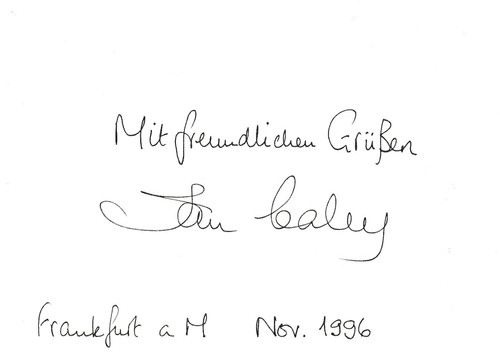 Mit freundlichen Grüßen
Frankfurt a M Nov. 1996